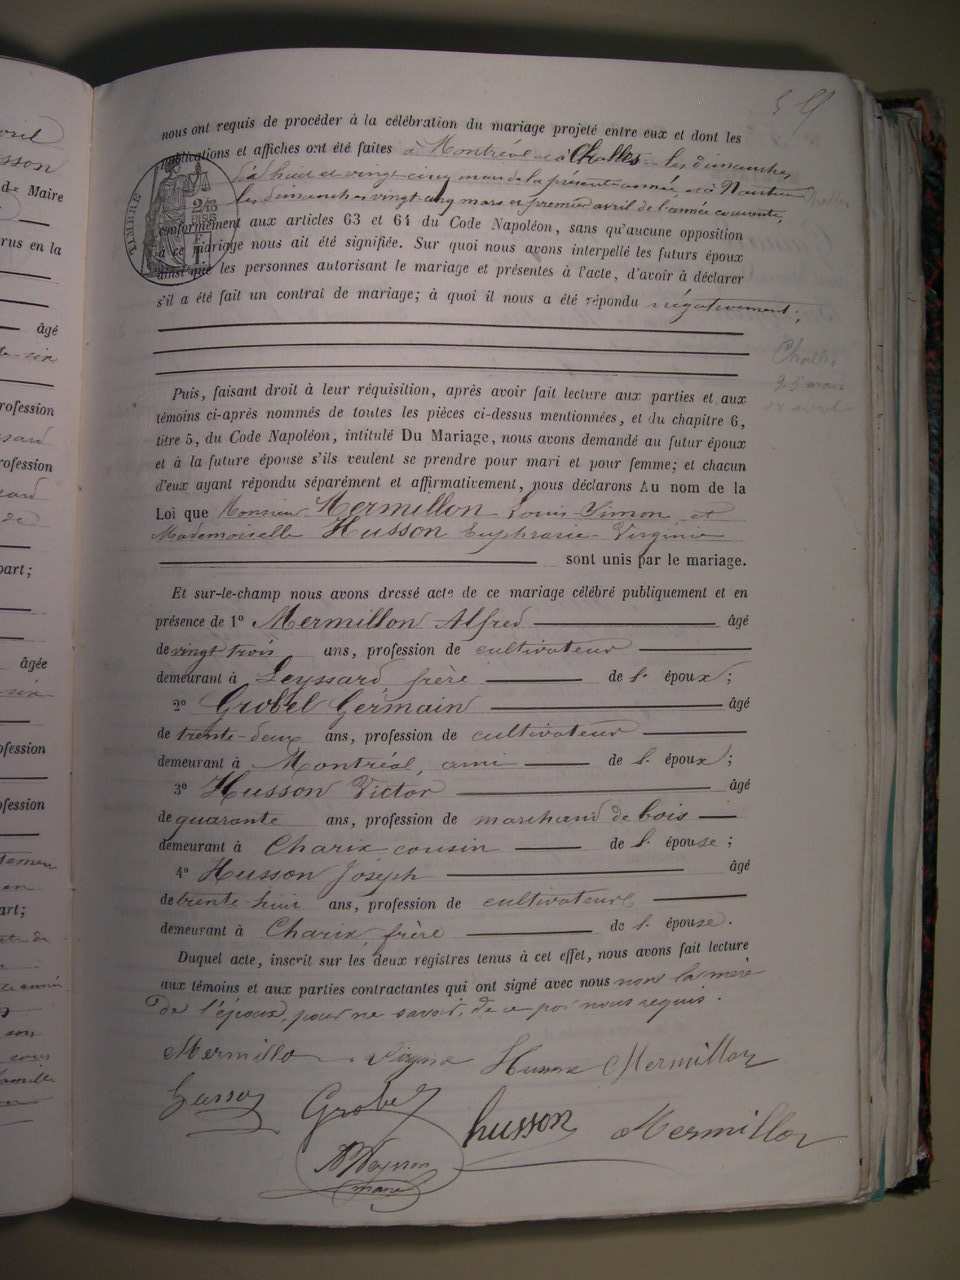 59
nous ont requis de procéder à la célébration du mariage projeté entre eux et dont les
publications et affiches ont été faites à Montréal et à Challes les dimanches
dix huit et vingt cinq mars de la présente année et à Nantua
les dimanches vingt cinq mars et premier avril de l'année courante,
conformément aux articles 63 et 64 du Code Napoléon, sans qu'aucune opposition
à ce mariage nous ait été signifiée. Sur quoi nous avons interpellé les futurs époux
ainsi que les personnes autorisant le mariage et présentes à l'acte, d'avoir à déclarer
s'il a été fait un contrat de mariage; à quoi il nous a été répondu négativement;
TIMBRE
Challes
25 mars
Puis, faisant droit à leur réquisition, après avoir fait lecture aux parties et aux
témoins ci-après nommés de toutes les pièces ci-dessus mentionnées, et du chapitre 6,
titre 5, du Code Napoléon, intitulé Du Mariage, nous avons demandé au futur époux
et à la future épouse s'ils veulent se prendre pour mari et pour femme; et chacun
d'eux ayant répondu séparément et affirmativement, nous déclarons Au nom de la
Loi que Monsieur Mermillon Louis Simon et
Mademoiselle Husson Euphrasie Virginie
sont unis par le mariage.
Et sur-le-champ nous avons dressé acte de ce mariage célébré publiquement et en
présence de 1º Mermillon Alfred âgé
de vingt trois ans, profession de cultivateur
demeurant à Leyssard, frère de l' époux;
2º Grobel Germain âgé
de trente-deux ans, profession de cultivateur
demeurant à Montréal, ami de l' époux;
3º Husson Victor âgé
de quarante ans, profession de marchand de bois
demeurant à Charix cousin de l' épouse;
4º Husson Joseph âgé
de trente-huit ans, profession de cultivateur
demeurant à Charix frère de l' épouse.
Duquel acte, inscrit sur les deux registres tenus à cet effet, nous avons fait lecture
aux témoins et aux parties contractantes qui ont signé avec nous non la mère
de l'époux, pour ne savoir, de ce par nous requis.
Mermillon Virginie Husson Mermillon
husson Grobel husson Mermillon
maire